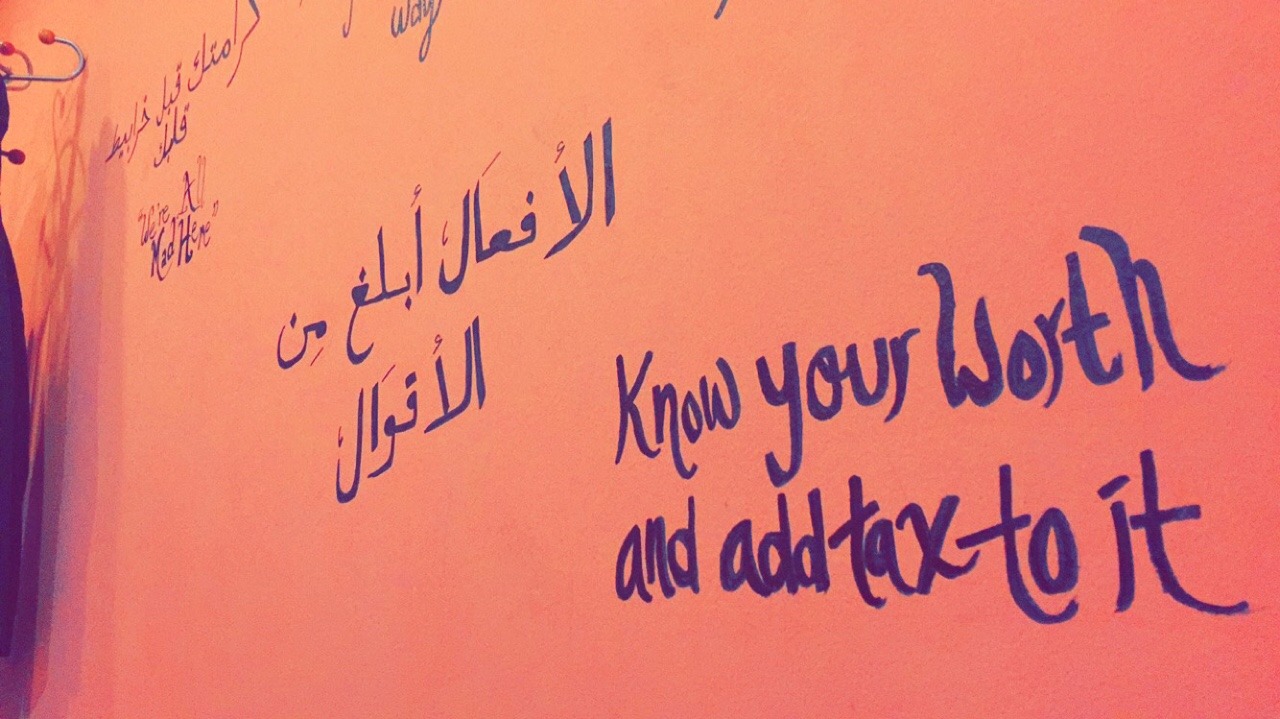 way
كرامتك قبل خرابيط
قلبك
"We're All
Mad Here"
الأفعَال أبلغ مِن
الأقوَال
Know your Worth
and add tax to it